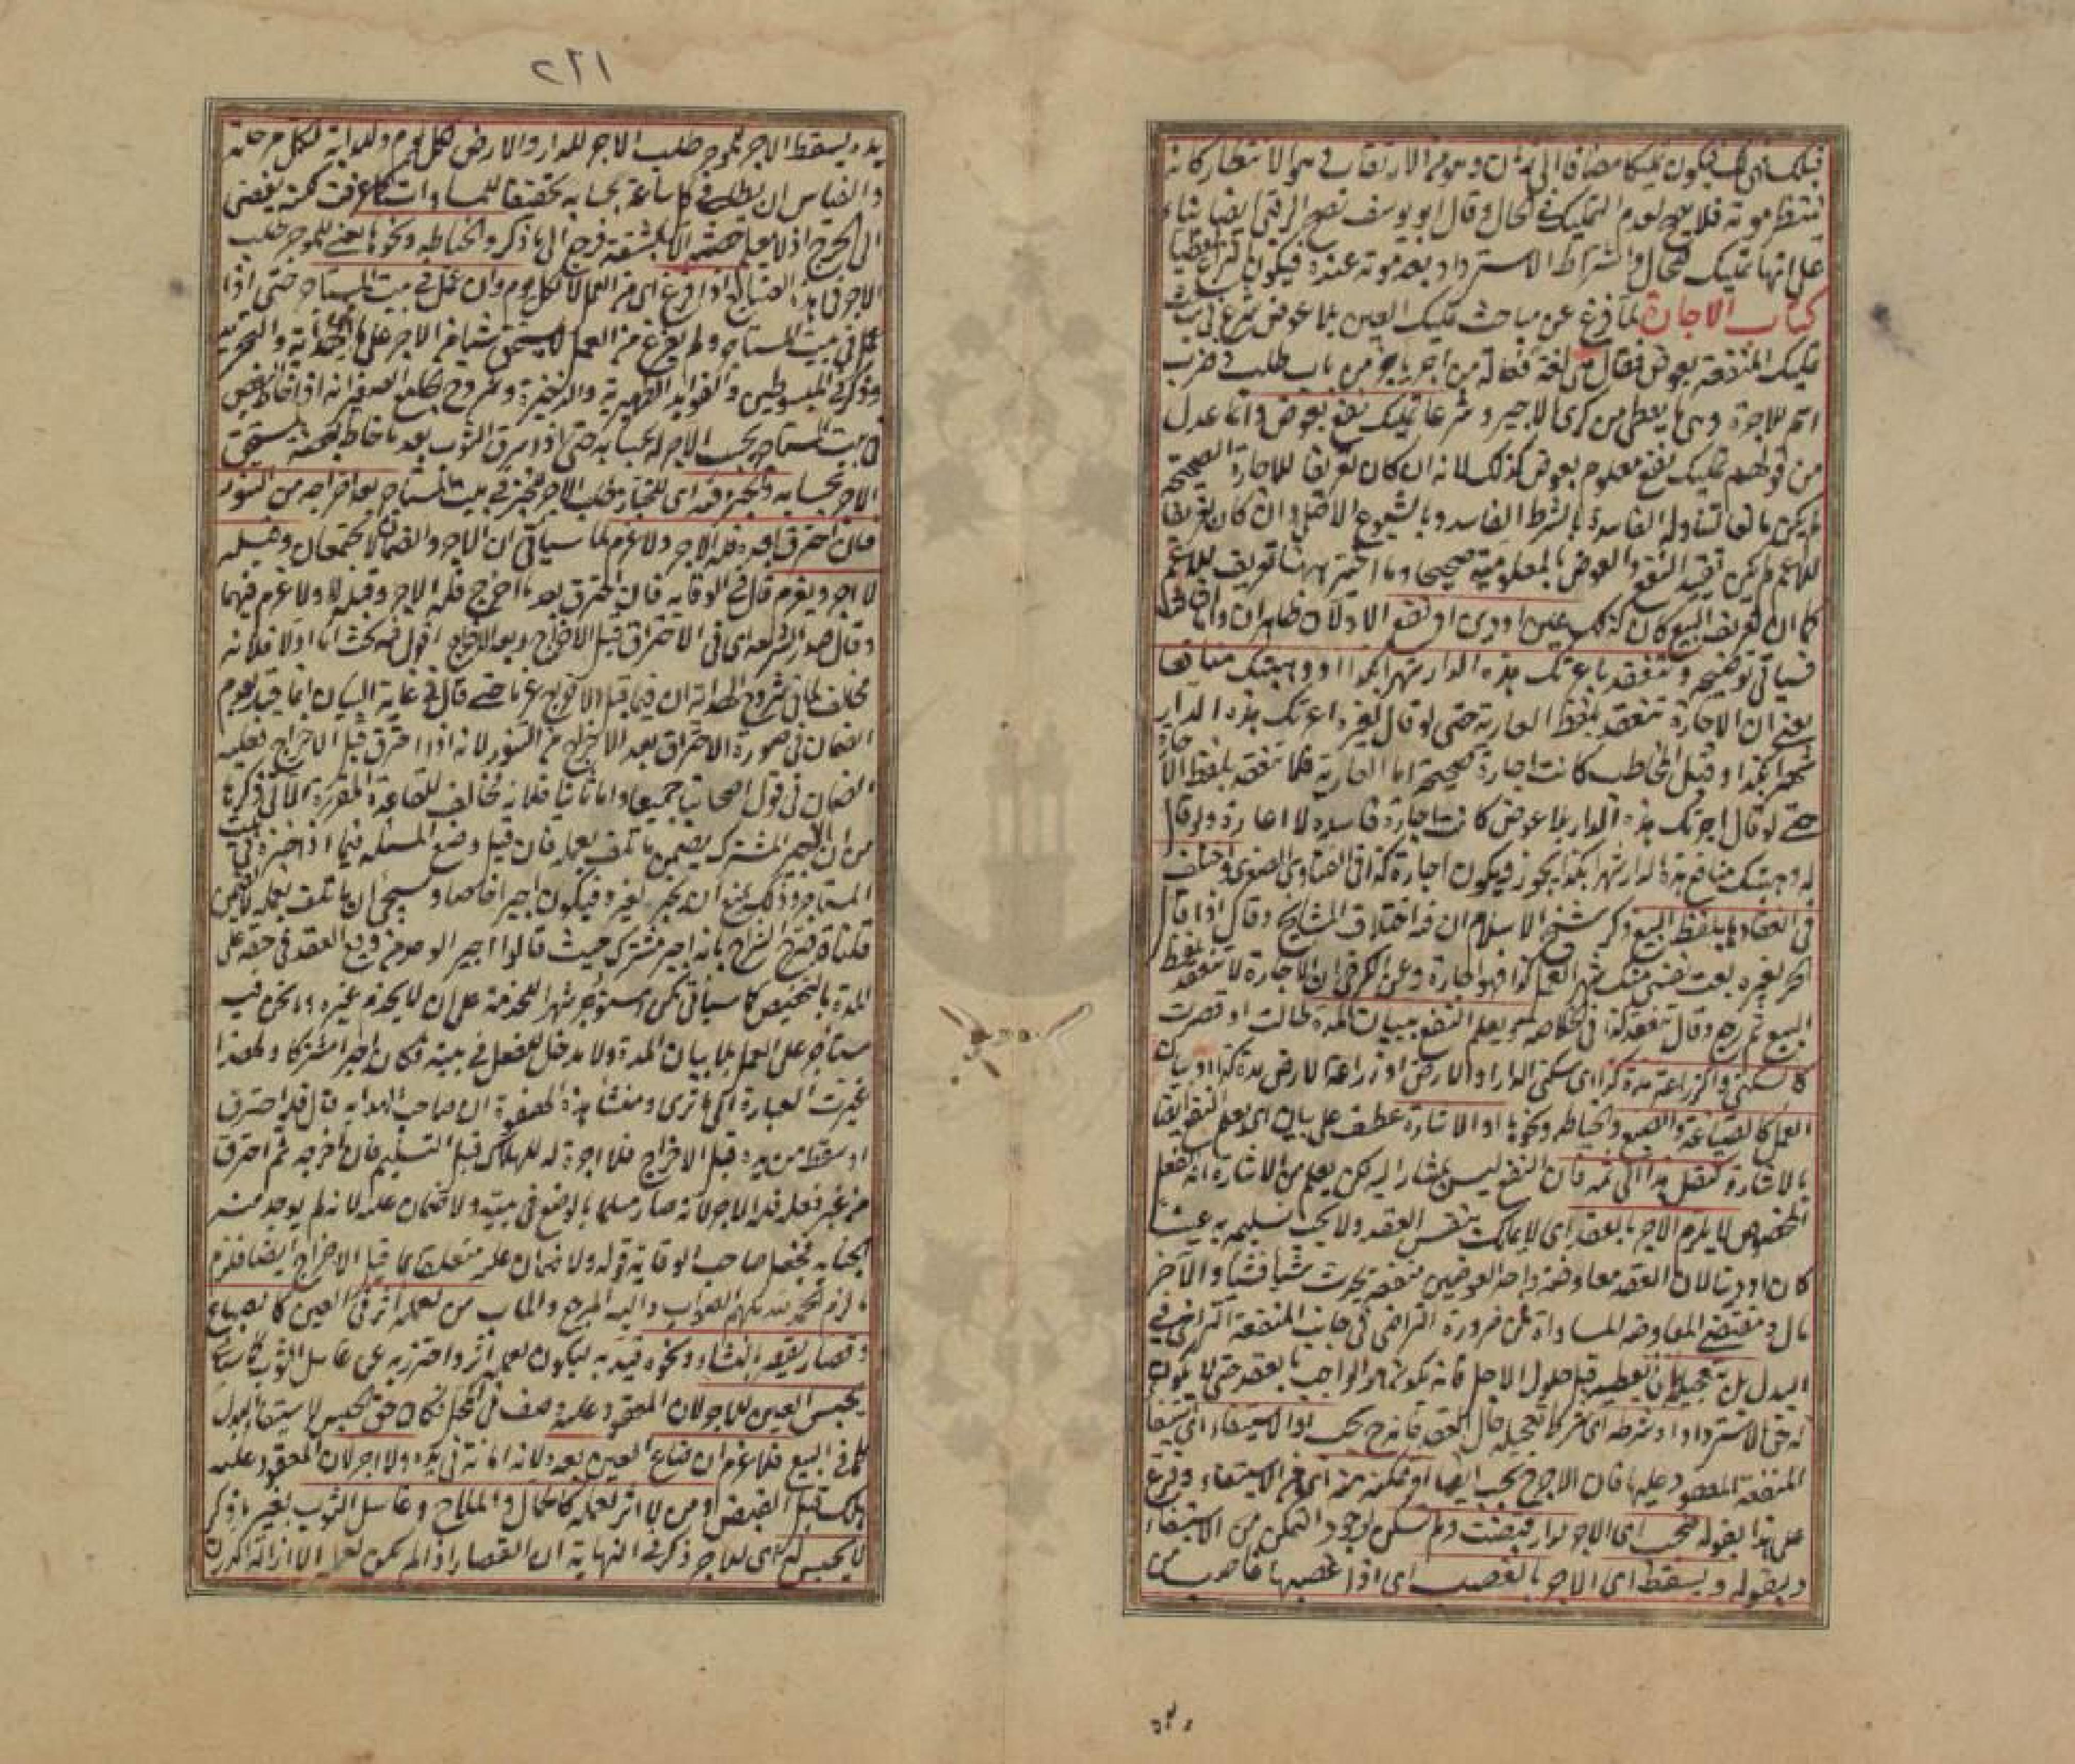 فملك ذلك فيكون تمليكا مضافا الى زمان وهو من الارتقاب وهو الانتظار كانه
ينتظر موته فلا يصح لعدم التمليك في الحال وقال ابو يوسف تصح الرقبى ايضا بناء
على انها تمليك للحال واشتراط الاسترداد بعد موته عنده فيكون
كتاب الاجارة لما فرغ عن مباحث تمليك العين بلا عوض شرع في بيان
تمليك المنفعة بعوض فقال هي لغة فعالة من اجر ياجر من باب طلب وضرب
اسم للاجرة وهي ما يعطى من كرى الاجير وشرعا تمليك نفع بعوض وانما عدل
من قولهم تمليك نفع معلوم بعوض كذلك لانه ان كان تعريفا للاجارة الصحيحة
لم يكن مانعا لتناوله الفاسدة بالشرط الفاسد وبالشيوع الاصلي وان كان تعريفا
للاعم لم يكن تقييد النفع والعوض بالمعلومية صحيحا وما اختير ههنا تعريف للاعم
كما ان تعريف البيع كان كذلك بعين او دين او نفع الاولان ظاهران واما الثالث
فسيأتي توضيحه وتنعقد باعرتك هذه الدار شهرا بكذا او وهبتك منافعها
يعني ان الاجارة تنعقد بلفظ العارية حتى لو قال لغيره اعرتك هذه الدار
شهرا بكذا وقبل المخاطب كانت اجارة صحيحة اما العارية فلا تنعقد بلفظ الاجارة
حتى لو قال اجرتك هذه الدار بلا عوض كانت اجارة فاسدة لا اعارة ولو قال
له وهبتك منافع هذه الدار شهرا بكذا يجوز فيكون اجارة كذا في الفتاوى الصغرى واختلف
في انعقادها بلفظ البيع ذكر شيخ الاسلام ان فيه اختلاف المشايخ وقال اذا قال
الحر لغيره بعت نفسي منك شهرا لعمل كذا فهو اجارة وعن الكرخي ان الاجارة لا تنعقد بلفظ
البيع ثم رجع وقال تنعقد كذا في الخلاصة ويعلم النفع ببيان المدة طالت او قصرت
كالسكنى والزراعة مدة كذا اى سكنى الدار او الارض او زراعة الارض مدة كذا او بيان
العمل كالصياغة والصبغ والخياطة ونحوها او الاشارة عطف على بيان اى يعلم النفع ايضا
بالاشارة كنقل هذا الى ثمه فان النفع ليس بمشار اليه لكن يعلم من الاشارة انه النقل
المخصوص لا يلزم الاجر بالعقد اى لا يملك بنفس العقد ولا يجب تسليمه به عينا
كان او دينا لان العقد معاوضة واحد العوضين منفعة يحدث شيئا فشيئا والآخر
مال ومقتضى المعاوضة المساواة فمن ضرورة التراخي في جانب المنفعة التراخي في
البدل بل بتعجيله بان يعطيه قبل حلول الاجل فانه يكون هو الواجب بالعقد حتى لا يكون
له حق الاسترداد او شرطه اى شرط تعجيله حال العقد فانه ح يجب او الاستيفاء اى استيفاء
المنفعة المعقود عليها فان الاجر ح يجب ايضا او تمكنه منه اى من الاستيفاء وفرع
على هذا بقوله فيجب اى الاجر لدار قبضت ولم تسكن لوجود التمكن من الاستيفاء
وبقوله ويسقط اى الاجر بالغصب اى اذا غصبها غاصب من
١٦٢
يده يسقط الاجر للموجر طلب الاجر للدار والارض لكل يوم وللدابة لكل مرحلة
والقياس ان يطلب في كل ساعة بحسابه تحقيقا للمساواة لكن يفضي
الى الحرج اذ لا يعلم حصته الا بمشقة فرجع الى ما ذكر وللخياطة ونحوها يعني للموجر طلب
الاجر في هذه الصنايع اذا فرغ اى من العمل لا لكل يوم وان عمل في بيت المستاجر حتى اذا
عمل في بيت المستاجر ولم يفرغ من العمل لا يستحق شيئا من الاجر على ما في الهداية والتجريد
وذكر في المبسوطين والفوائد الظهيرية والذخيرة وشروح الجامع الصغير انه اذا خاط البعض
في بيت المستاجر يجب الاجر له بحسابه حتى اذا سرق الثوب بعد ما خاط بعضه يستحق
الاجر بحسابه وللخبز فيه اى للخباز طلب الاجر للخبز في بيت المستاجر بعد اخراجه من التنور
فان احترق بعده فله الاجر ولا غرم لما سيأتي ان الاجر والضمان لا يجتمعان وقبله
لا اجر ويغرم قال في الوقاية فان احترق بعد ما اخرج فله الاجر وقبله لا ولا غرم فيهما
وقال صدر الشريعة اى في الاحتراق قبل الاخراج وبعد الاخراج اقول فيه بحث اما اولا فلانه
مخالف لما في شروح الهداية ان فيما قبل الاخراج غرما حتى قال في غاية البيان انما قيد بعدم
الضمان في صورة الاحتراق بعد الاخراج من التنور لانه اذا احترق قبل الاخراج فعليه
الضمان في قول اصحابنا جميعا واما ثانيا فلانه مخالف للقاعدة المقررة الآتي ذكرها
من ان الاجير المشترك يضمن ما تلف بعمله فان قيل وضع المسئلة فيما اذا خبز في بيت
المستاجر وذلك يمنع ان يخبز لغيره فيكون اجيرا خاصا وسيجئ ان ما تلف بعمله لا يضمن
قلنا قد صرح الشراح بانه اجير مشترك حيث قالوا اجير الوحد من وقع العقد في حقه على
المدة بالتخصيص كما سيأتي كمن استؤجر شهرا للخدمة على ان لا يخدم غيره وما نحن فيه
مستاجر على العمل بلا بيان المدة ولا مدخل للفعل في بيته فكان اجيرا مشتركا ولهذا
غيرت العبارة الى ما ترى ومنشأ هذه الهفوة ان صاحب الهداية قال فلو احترق
او سقط من يده قبل الاخراج فلا اجرة له للهلاك قبل التسليم فان اخرجه ثم احترق
من غير فعله فله الاجر لانه صار مسلما بالوضع في بيته ولا ضمان عليه لانه لم يوجد منه
الجناية فجعل صاحب الوقاية قوله ولا ضمان عليه متعلقا بما قبل الاخراج ايضا فلزم
ما لزم الحمد لله ملهم الصواب واليه المرجع والمآب من لعمله اثر في العين كالصباغ
وقصار يقصر بالنشاء ونحوه قيد به ليكون لعمله اثر واحترز به عن غاسل الثوب كما سيأتي
يحبس العين للاجر لان المعقود عليه وصف في المحل فكان له حق الحبس لاستيفاء البدل
كما في البيع فلا غرم ان ضاع العين بعده لانه امانة في يده ولا اجر لان المعقود عليه
هلك قبل القبض ومن لا اثر لعمله كالحمال والملاح وغاسل الثوب بغير ما ذكر
لا يحبس اى للاجر ذكر في النهاية ان القصار اذا لم يكن لعمله الا ازالة الدرن